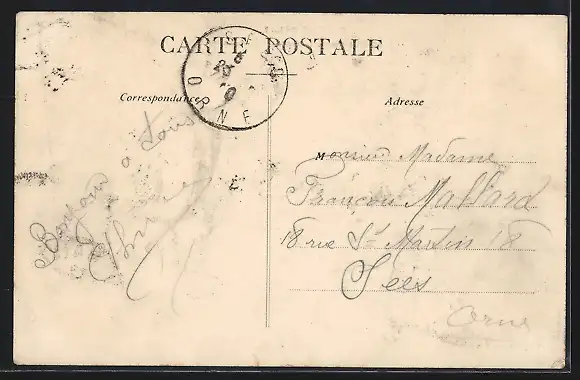 CARTE POSTALE
Correspondance
Adresse
Bonjour a tous
Monsieur Madame
François Mallard
18 rue St Martin 18
Sées
Orne